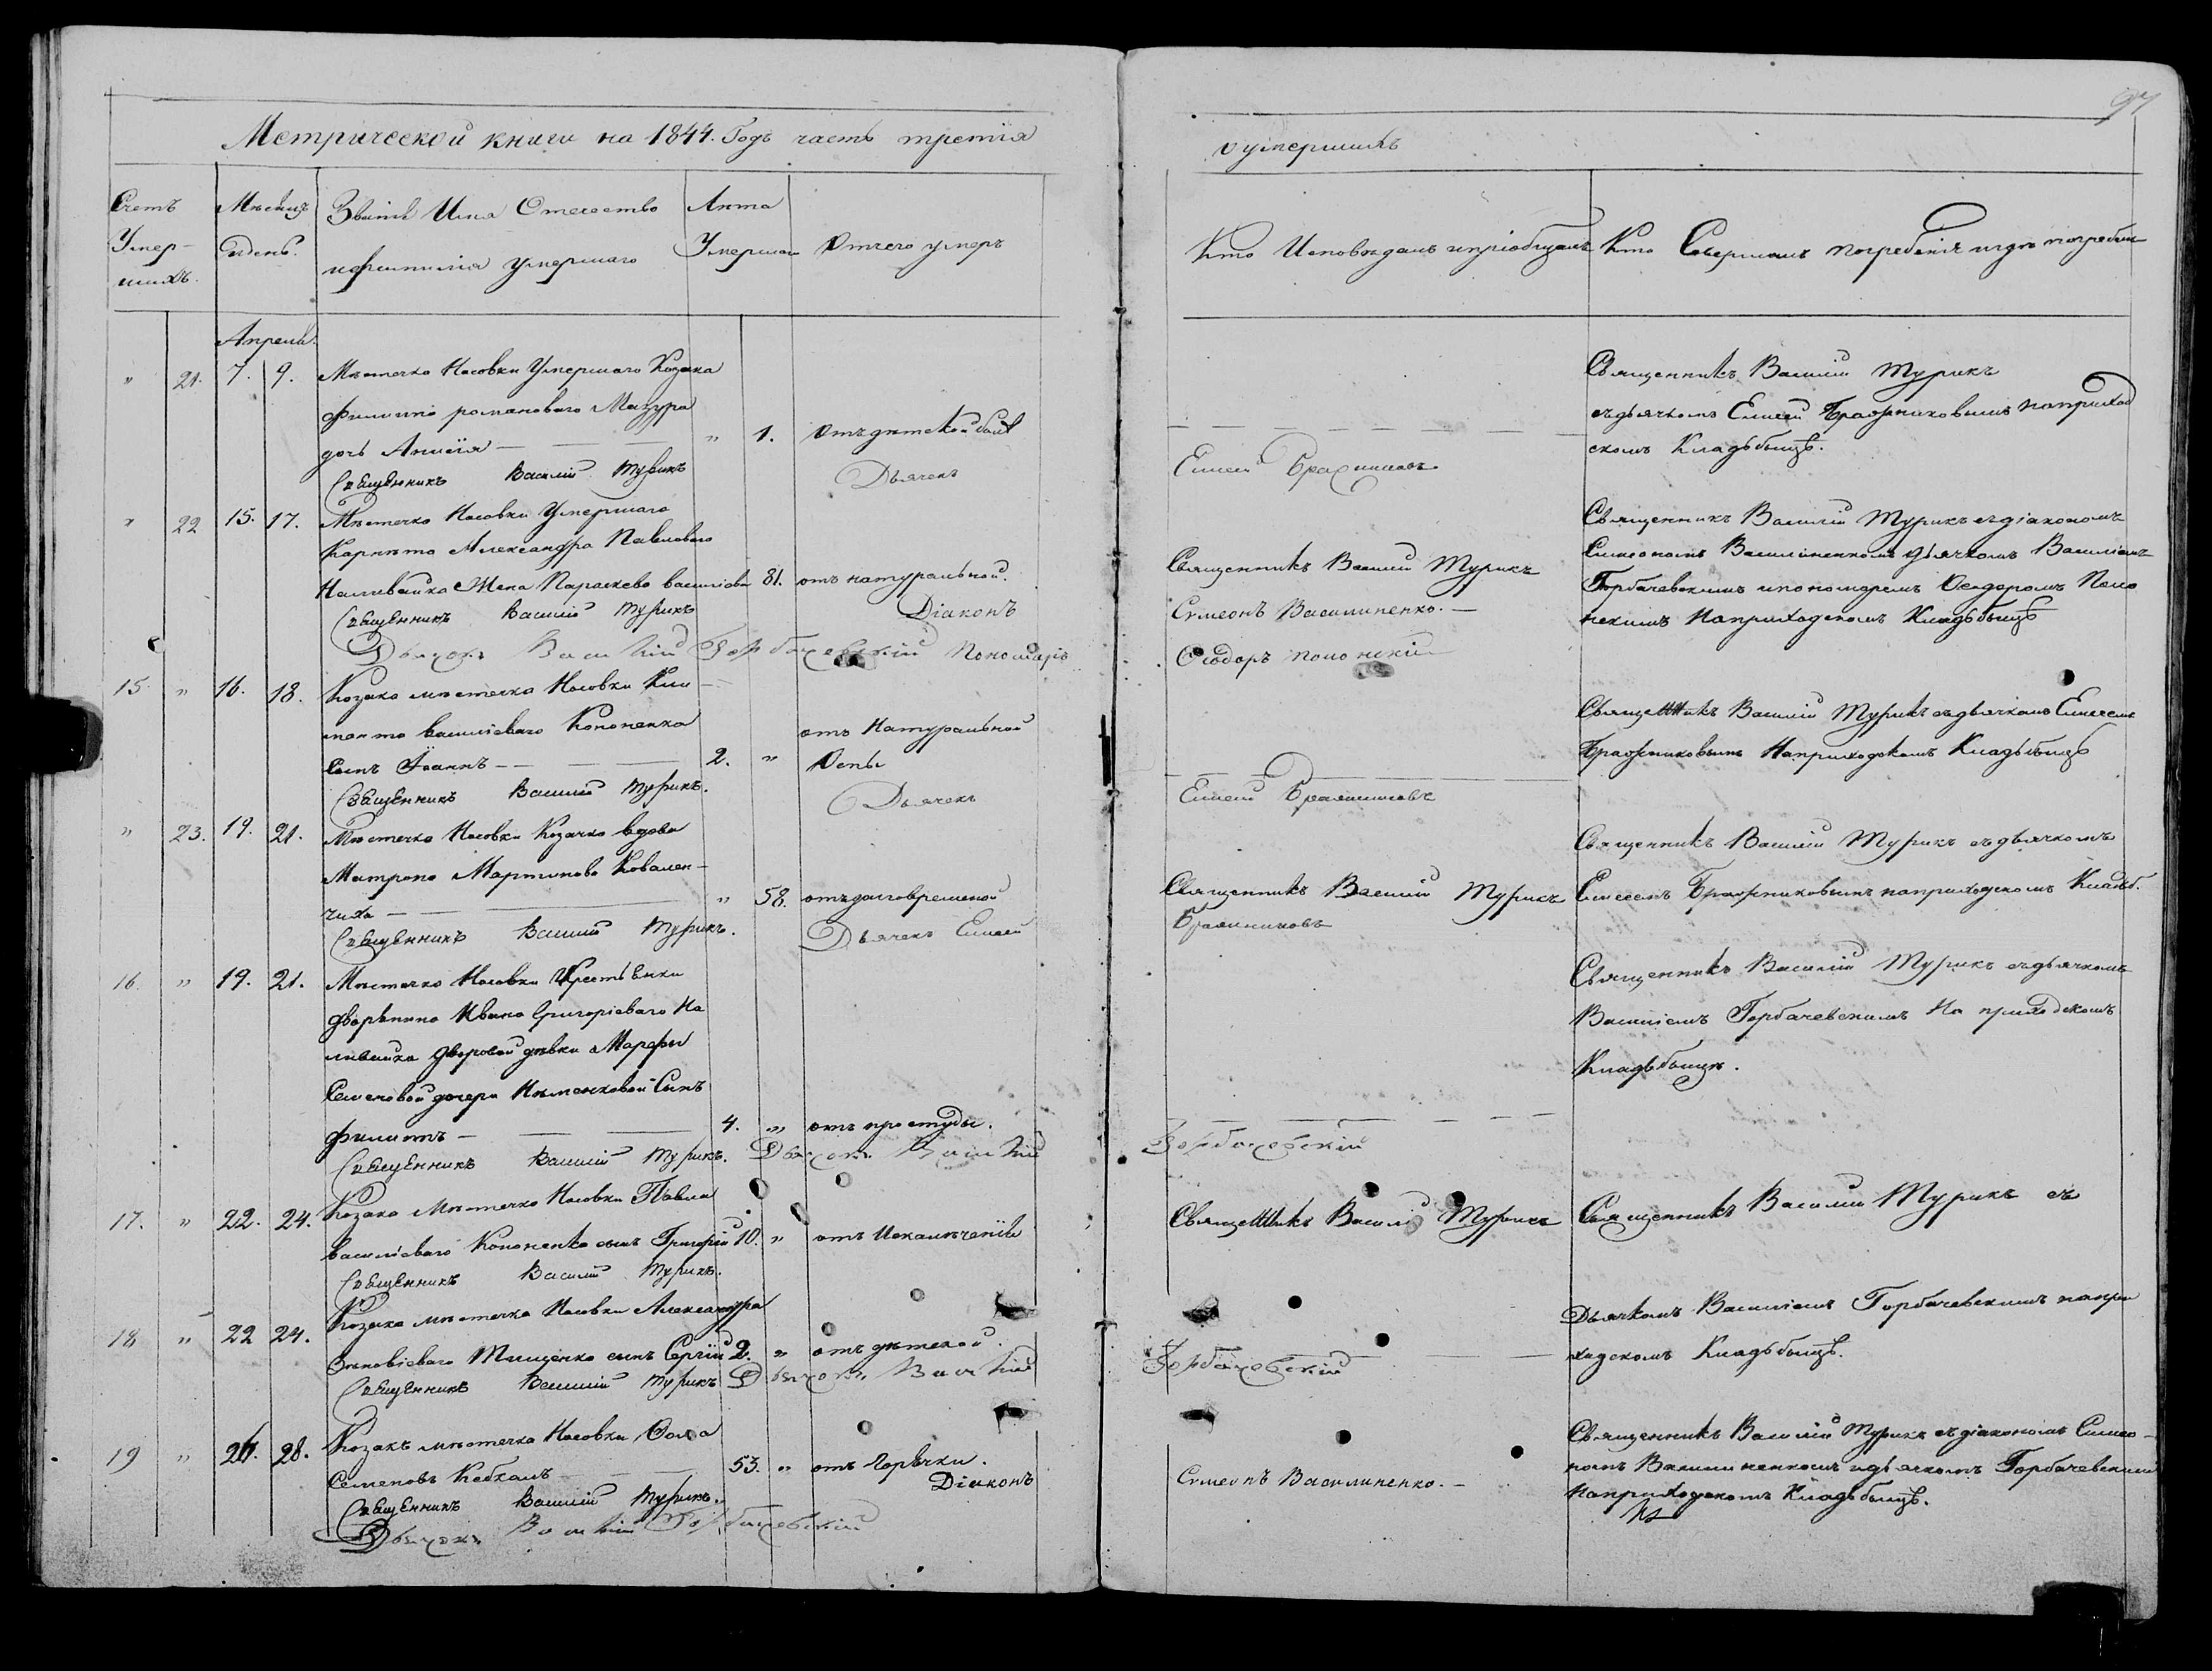 97
Метрической книги на 1844. Годъ часть третія
о умершихъ
Счетъ Умер-шихъ.
Мѣсяцъ и день.
Званіе Имя Отечество и фамилія умершаго
Лѣта Умершаго
Отчего умеръ
Кто Исповѣдалъ и пріобщалъ
Кто Совершалъ погребеніе и гдѣ погребен
Апрель.
" 21. 7. 9. Мѣстечка Носовки Умершаго Козака
филипа романоваго Мазура
дочь Анисія — " 1. Отъ дѣтской бол
Священникъ Василій Турикъ Дьячекъ
Елисей Бражниковъ
Священникъ Василій Турикъ
съ дьячкомъ Елисеем Бражниковымъ на приход
скомъ Кладбищѣ.
" 22 15. 17. Мѣстечка Носовки Умершаго
Карнета Александра Павловаго
Наливайка Жена Параскева василіова 81. отъ натуральной.
Священникъ Василій Турикъ Діаконъ
Дьячекъ Василій Горбачевскій Пономарь
Священникъ Василій Турикъ
Симеонъ Василиненко. —
Ѳеодоръ Полонскій
Священникъ Василій Турикъ съ діакономъ
Симеономъ Василиненкомъ дьячкомъ Василіемъ
Горбачевскимъ и пономаремъ Ѳедоромъ Поло
нскимъ На приходскомъ Кладбищѣ
15. " 16. 18. Козака мѣстечка Носовки Кли —
мента василіеваго Кононенка
Сынъ Іоаннъ — 2. " отъ Натуральной Оспы
Священникъ Василій Турикъ. Дьячекъ
Елисей Бражниковъ
Священникъ Василій Турикъ съ дьячкомъ Елисеемъ
Бражниковымъ На приходскомъ Кладбищѣ
" 23. 19. 21. Мѣстечка Носовки Козачка вдова
Матрона Мартинова Ковален-
чиха — " 58. отъ долговременой
Священникъ Василій Турикъ. Дьячекъ Елисей
Священникъ Василій Турикъ
Бражниковъ
Священникъ Василій Турикъ съ дьячкомъ
Елисеемъ Бражниковымъ на приходскомъ Кладб.
16. " 19. 21. Мѣстечка Носовки Крестьянки
дворѣнина Ивана Григоріеваго На
ливайка дворовой дѣвки Марфы
Семеновой дочери Нѣменковой Сынъ
филипъ — 4. " отъ простуды.
Священникъ Василій Турикъ. Дьячекъ Василій
Горбачевскій
Священникъ Василій Турикъ съ дьячкомъ
Василіемъ Горбачевскимъ На приходскомъ
Кладбищѣ.
17. " 22. 24. Козака Мѣстечка Носовки Павла
василіеваго Кононенка сынъ Григорій 10. "
Священникъ Василій Турикъ.
Священникъ Василій Турикъ
Священникъ Василій Турикъ съ
18 " 22 24. Козака мѣстечка Носовки Александра
Тищенка сынъ Сергій 2. " отъ дѣтской.
Священникъ Василій Турикъ Дьячекъ Василій
Горбачевскій
Дьячкомъ Василіемъ Горбачевскимъ на при
ходскомъ Кладбищѣ.
19 " 26. 28. Козакъ мѣстечка Носовки Ѳома
Семеновъ 53. " отъ Горячки.
Священникъ Василій Турикъ. Діаконъ
Дьячекъ Василій Горбачевскій
Симеонъ Василиненко. —
Священникъ Василій Турикъ съ діакономъ Симео-
номъ Василиненкомъ и дьячкомъ Горбачевскимъ
На приходскомъ Кладбищѣ.